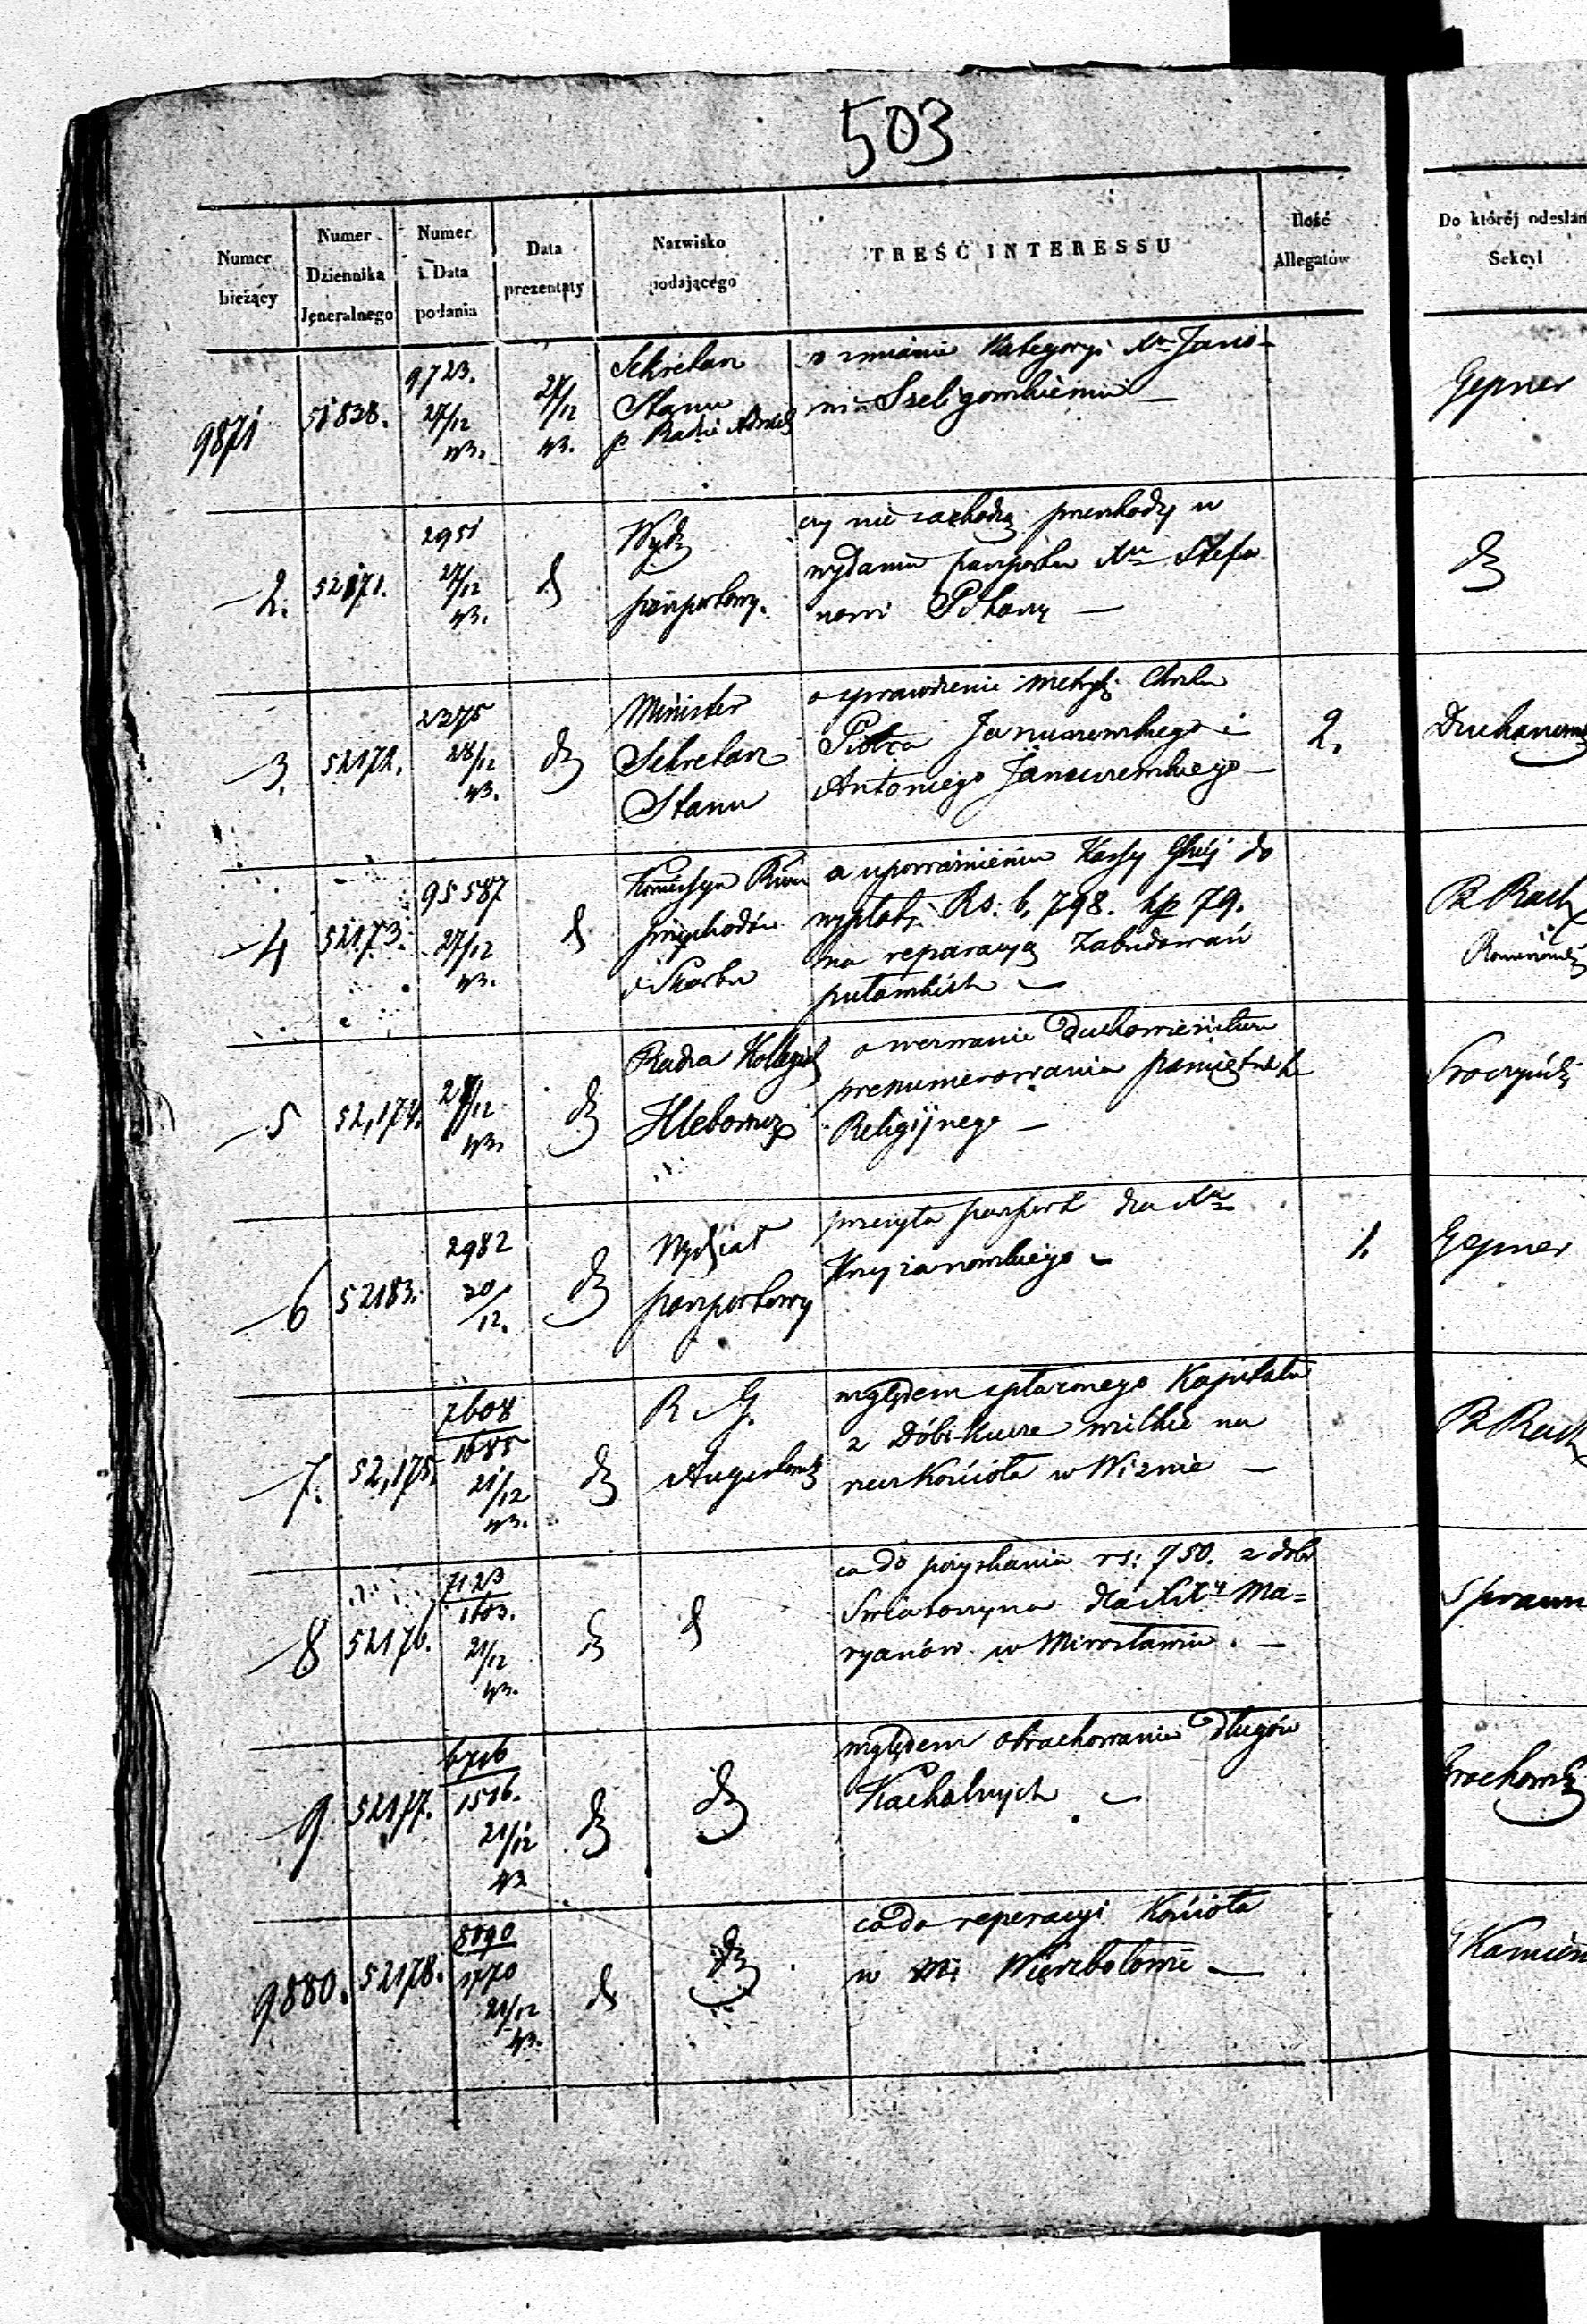 503
Numer bieżący
Numer Dziennika Jeneralnego
Numer i Data podania
Data prezentaty
Nazwisko podającego
TREŚĆ INTERESSU
Ilość Allegatów
Do której odesłan Sekcyi
9871 51838. 9723. 27/12 43. 27/12 43.
Sekretarz
Stanu
p Radzie
o zmianie Kategoryi Xu Jano-
wi Szeligowskiemu —
Gepner
2. 52171. 2951 27/12 43.
Wydz
paszportowy.
czy nie zachodzą przeszkody w
wydaniu paszportu Xu Stefa
nowi —
3. 52172. 2375 28/12 43.
Minister
Sekretarz
Stanu
o sprawdzenie metryk Chrztu
Piotra Januszewskiego i
Antoniego Januszewskiego —
2.
4 52173. 95587 27/12 43.
Kommissya
Przychodów
i Skarbu
o upoważnieniu Kassy do
wypłaty Rs: 6,798. kp 79.
na reparacyą Zabudowań
puławskich —
B Rach
5 52,174. 28/12 43.
Radca Kolleg
Hlebowicz
o wezwanie Duchowieństwa
prenumerowania pamiętnik
Religijnego —
6 52183. 2982 30/12.
Wydział
paszportowy
przesyła paszport dla Xa
Krzyżanowskiego —
1.
Gepner
7. 52,175. 7608 1685 21/12 43.
R G.
Augustows
względem spłaconego Kapitału
z Dóbr Kurze wielkie na
rzecz Kościoła w Wiznie —
B Rach
8 52176. 7123 1603. 21/12 43.
co do pozyskania rs: 750. z dobr
Swiatoszyna dla XXy Ma=
ryanów w Mirosławiu. —
Spraw
9. 52177. 6716 1516. 21/12 43
względem obrachowania Długów
Kachalnych —
9880. 52178. 8090 1770 21/12 43.
co do reperacyi Kościoła
w Mi Wierzbołowie —